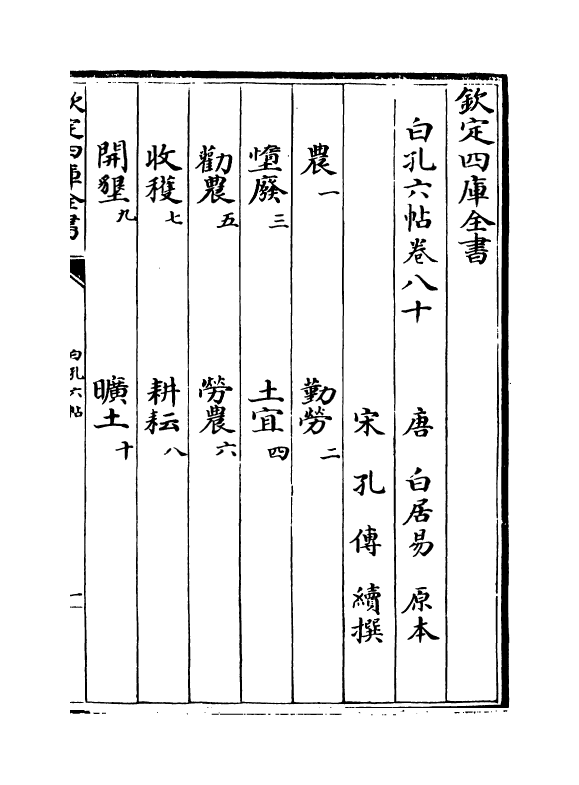 欽定四庫全書
白孔六帖卷八十
唐 白居易 原本
宋 孔傳 續撰
農一 勤勞二
惰廢三 土宜四
勸農五 勞農六
收穫七 耕耘八
開墾九 曠土十
欽定四庫全書 白孔六帖 一